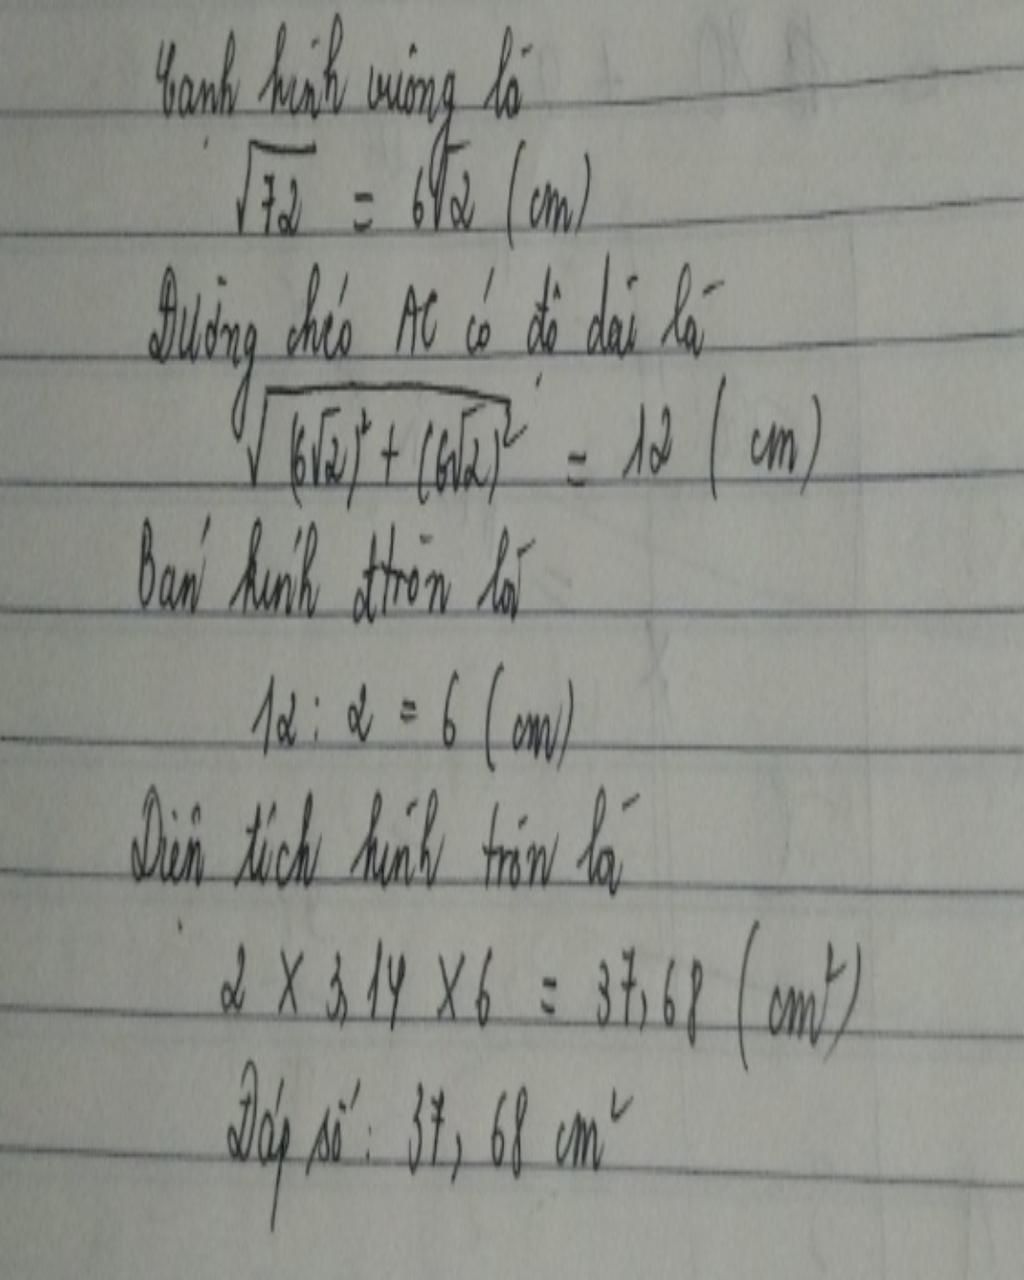 Cạnh hình vuông là
√72 = 6√2 (cm)
Đường chéo AC có độ dài là
√(6√2)² + (6√2)² = 12 (cm)
Bán kính htròn là
12 : 2 = 6 (cm)
Diện tích hình tròn là
2 x 3,14 x 6 = 37,68 (cm²)
Đáp số: 37,68 cm²